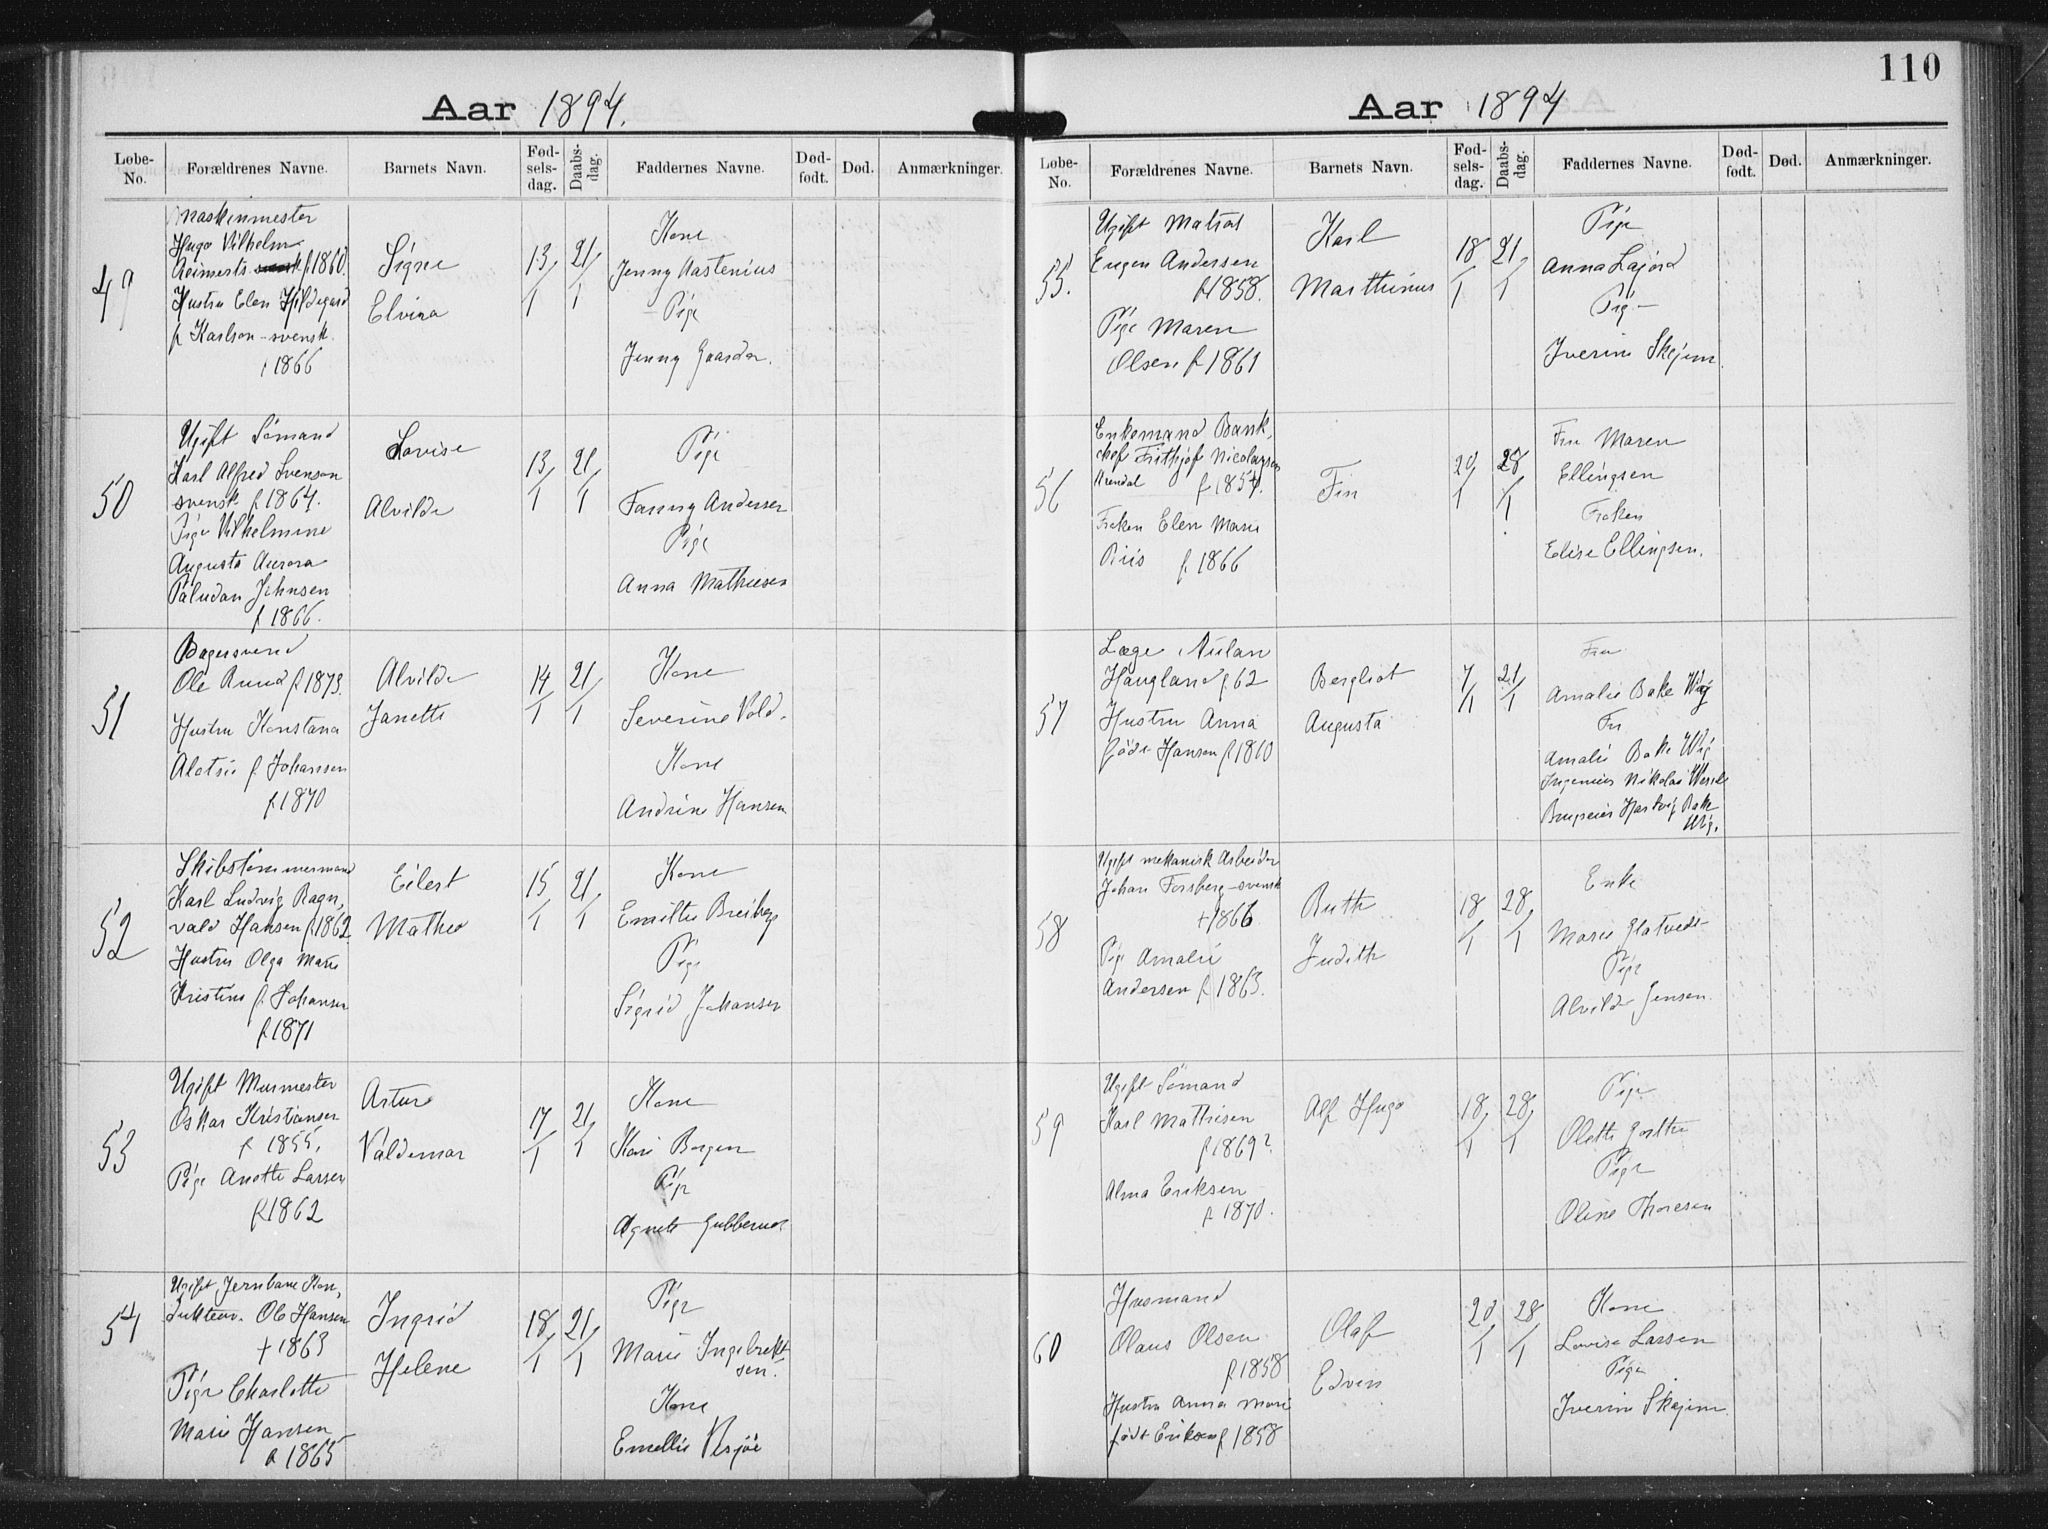 110
Aar 1894.
Løbe-No. Forældrenes Navne. Barnets Navn. Fød-sels-dag. Daabs-dag. Faddernes Navne. Død-født. Død. Anmærkninger.
49
Maskinmester
Hugo Vilhelm
Reimerts f 1860.
Hustru Elen Hildegard
f Karlson - svensk.
1866
Signe
Elvira
13/1
21/1
Kone
Jenny Aastenius
Pige
Jenny Gaarder.
50
Ugift Sømand
Karl Alfred Svenson
svensk f 1864.
Pige Vilhelmine
Augusta Aurora
Paludan Johnsen
f 1866.
Lovise
Alvilde
13/1
21/1
Pige
Fanny Andersen
Pige
Anna Mathiesen
51
Bagersvend
Ole Ruud f 1873.
Hustru Konstana
Alotsie f Johansen
f. 1870
Alvilde
Janette
14/1
21/1
Kone
Severine Vold.
Kone
Andrine Hansen
52
Skibstømmermand
Karl Ludvig Ragn,
vald Hansen f 1862
Hustru Olga Marie
Kristine f. Johansen
f. 1871
Eilert
Matheo
15/1
21/1
Kone
Emilie Breiberg
Pige
Sigrid Johansen
53
Ugift Murmester
Oskar Kristiansen
f 1855.
Pige Anette Larsen
f. 1862
Artur
Valdemar
17/1
21/1
Kone
Kari Borgen
Pige
Agnete Gubberud
54
Ugift Jernbane Kon,
duktør. Ole Hansen
f 1863
Pige Charlotte
Marie Hansen
f 1865
Ingrid
Helene
18/1
21/1
Pige
Marie Ingebrekt
sen.
Kone
Emellie
Aar 1894
Løbe-No. Forældrenes Navne. Barnets Navn. Fød-sels-dag. Daabs-dag. Faddernes Navne. Død-født. Død. Anmærkninger.
55.
Ugift Matros
Eugen Andersen
f 1858.
Pige Maren
Olsen f 1861
Karl
Marthinius
18/1
21/1
Pige
Anna Lajord
Pige
Iverine Skejem.
56
Enkemand Bank,
chef Frithjof Nicolaysen
Arendal f 1854.
Frøken Elen Marie
Riis f. 1866
Fin
20/1
28/1
Fru Maren
Ellingsen
Frøken
Elise Ellingsen.
57
Læge Aulan
Haugland f. 62
Hustru Anna
født Hansen f 1860
Bergliot
Augusta
7/1
21/1
Fru
Amalie Bake Wig
Fru
Amalie Bake Wig
Ingeniør Nikolai
Hartvig Bake
Wig.
58
Ugift mekanisk Arbeider
Johan Forsberg - svensk
f 1866
Pige Amalie
Andersen f 1863.
Ruth
Judith
18/1
28/1
Enke
Marie Glatvedt
Pige
Alvilde Jensen.
59
Ugift Sømand
Karl Mathisen
f 1869?
Alma Eriksen
f 1870.
Alf Hugo
18/1
28/1
Pige
Olette Gorthe
Pige
Oline Thoresen
60
Husmand
Olaus Olsen
f. 1858
Hustru Anna Marie
født Eriksen f 1858
Olaf
Edvin
20/1
28/1
Kone
Lovise Larsen
Pige
Iverine Skejem.